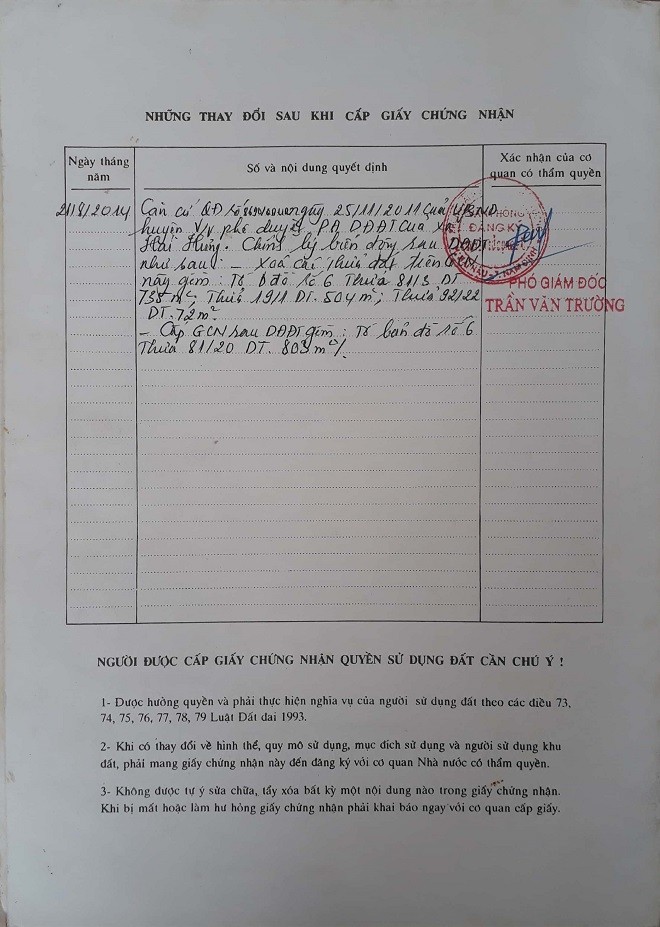 NHỮNG THAY ĐỔI SAU KHI CẤP GIẤY CHỨNG NHẬN
Ngày tháng năm
Số và nội dung quyết định
Xác nhận của cơ quan có thẩm quyền
21/8/2014
Căn cứ QĐ số ngày 25/11/2011 của UBND
huyện V/v phê duyệt PA DĐĐT của xã
Hải Hưng. Chỉnh lý biến động sau DĐĐT
như sau: - Xoá các thửa đất trên GCN
này gồm: Tờ b đồ số 6 Thửa 81/3 DT
738 m²; Thửa 19/1 DT. 504 m²; Thửa 92/22
DT. 72 m²
- Cấp GCN sau DĐĐT gồm: Tờ bản đồ số 6
Thửa 81/20 DT. 803 m²/.
ĐĂNG KÝ
HẬU - T. NAM ĐỊNH
PHÓ GIÁM ĐỐC
TRẦN VĂN TRƯỜNG
NGƯỜI ĐƯỢC CẤP GIẤY CHỨNG NHẬN QUYỀN SỬ DỤNG ĐẤT CẦN CHÚ Ý !
1- Được hưởng quyền và phải thực hiện nghĩa vụ của người sử dụng đất theo các điều 73,
74, 75, 76, 77, 78, 79 Luật Đất đai 1993.
2- Khi có thay đổi về hình thể, quy mô sử dụng, mục đích sử dụng và người sử dụng khu
đất, phải mang giấy chứng nhận này đến đăng ký với cơ quan Nhà nước có thẩm quyền.
3- Không được tự ý sửa chữa, tẩy xóa bất kỳ một nội dung nào trong giấy chứng nhận.
Khi bị mất hoặc làm hư hỏng giấy chứng nhận phải khai báo ngay với cơ quan cấp giấy.